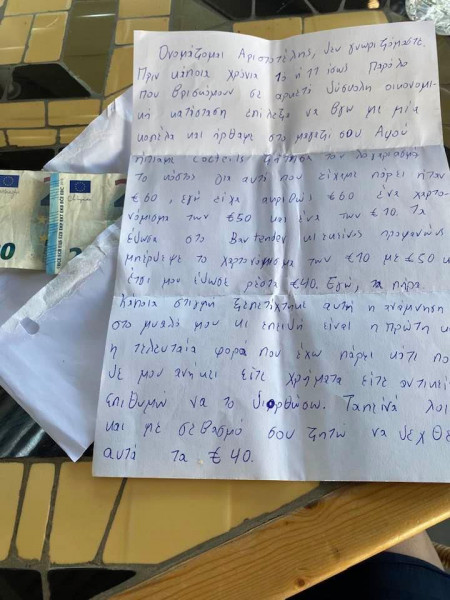 Ονομάζομαι Αριστοτέλης, δεν γνωριζόμαστε.
Πριν κάποια χρόνια 10 ή 11 ίσως. Παρόλο
που βρισκόμουν σε αρκετά δύσκολη οικονομι-
κή κατάσταση επέλεξα να βγω με μία
κοπέλα και ήρθαμε στο μαγαζί σου. Αφού
ήπιαμε cocktails ζήτησα τον λογαριασμό
Το κόστος για αυτά που είχαμε πάρει ήταν
€60, εγώ είχα ακριβώς €60 ένα χαρτο-
νόμισμα των €50 και ένα των €10. Τα
έδωσα στο Bartender κι εκείνος προφανώς
μπέρδεψε το χαρτονόμισμα των €10 με €50 κ
έτσι μου έδωσε ρέστα €40. Εγώ, τα πήρα
Κάποια στιγμή ξεπετάχτηκε αυτή η ανάμνηση
στο μυαλό μου κι επειδή είναι η πρώτη κ
η τελευταία φορά που έχω πάρει κάτι πο
δε μου ανήκει είτε χρήματα είτε αντικεί
επιθυμώ να το διορθώσω. Ταπεινά λοι
και με σεβασμό σου ζητώ να δεχθε
αυτά τα €40.